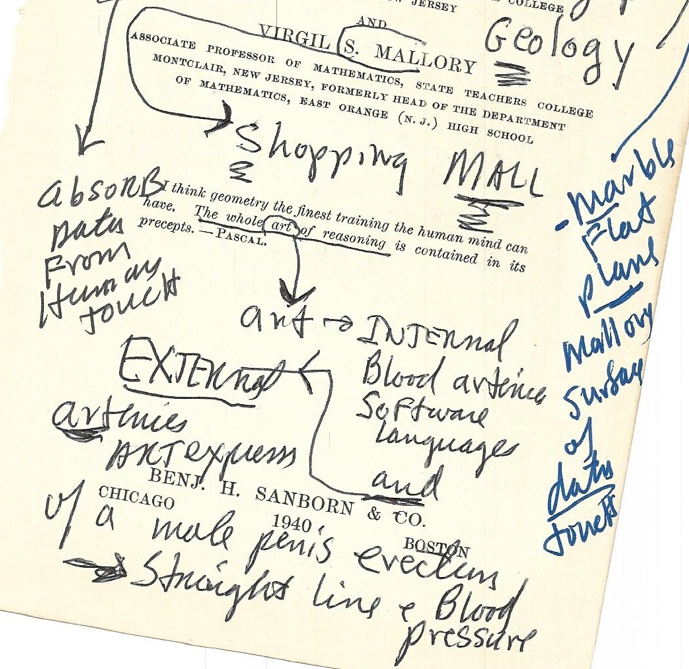 AND
VIRGIL S. MALLORY
Geology
ASSOCIATE PROFESSOR OF MATHEMATICS, STATE TEACHERS COLLEGE
MONTCLAIR, NEW JERSEY, FORMERLY HEAD OF THE DEPARTMENT
OF MATHEMATICS, EAST ORANGE (N. J.) HIGH SCHOOL
Shopping MALL
absorB
Data
From
Human
touch
I think geometry the finest training the human mind can
have. The whole art of reasoning is contained in its
precepts. —PASCAL.
- marble
Flat
plane
Mallory
Surface
of
data
touch
art → INTERNAL
Blood arteries
Software
languages
and
EXTERNAL
arteries
ART express
BENJ. H. SANBORN & CO.
CHICAGO 1940 BOSTON
of a male penis erection
Straight line e Blood
pressure